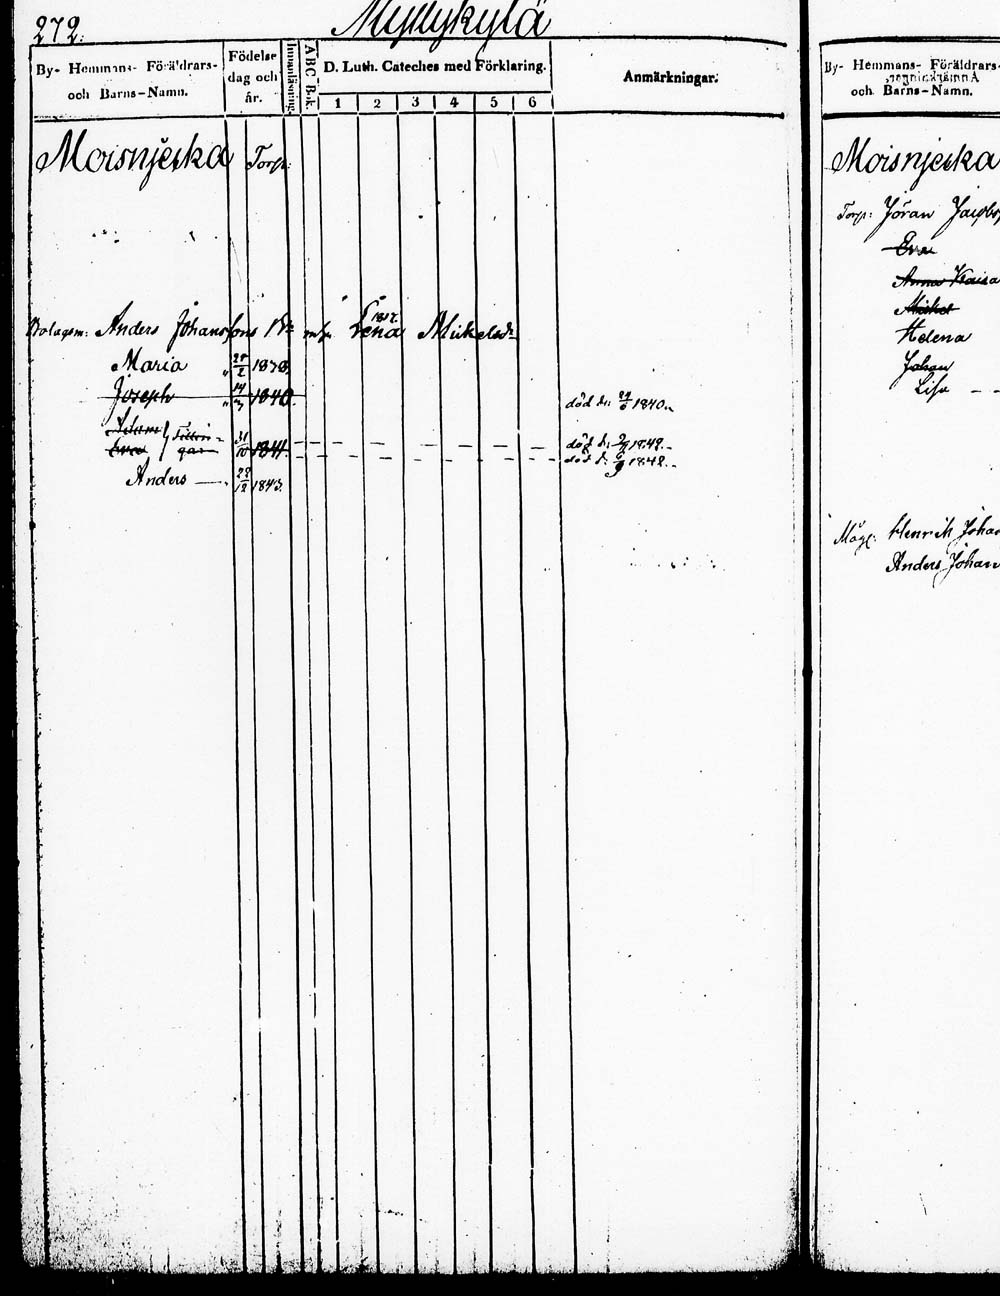 272.
Myllykylä
By- Hemmans- Föräldrars-
och Barns-Namn.
Födelse
dag och
år.
Innanläsning.
ABC B-k.
D. Luth. Cateches med Förklaring.
1 2 3 4 5 6
Anmärkningar.
Moisnjeska Torp.
Bolagsm: Anders Johanssons Br 1812 Lena Mickelsdr
Maria 1838.
Joseph 14/3 1840. död d: 1840.
Adam
Eva Tillin-
gar 31/10 1841 död d: 1842.
död d: 1842.
Anders 1843.
By- Hemmans- Föräldrars-
Anmärkningar.
och Barns-Namn.
Moisnjeska
Torp: Jöran
Eva
Anna Kaisa
Mickel
Helena
Johan
Lisa
Måg: Henrik Johan
Anders Johan